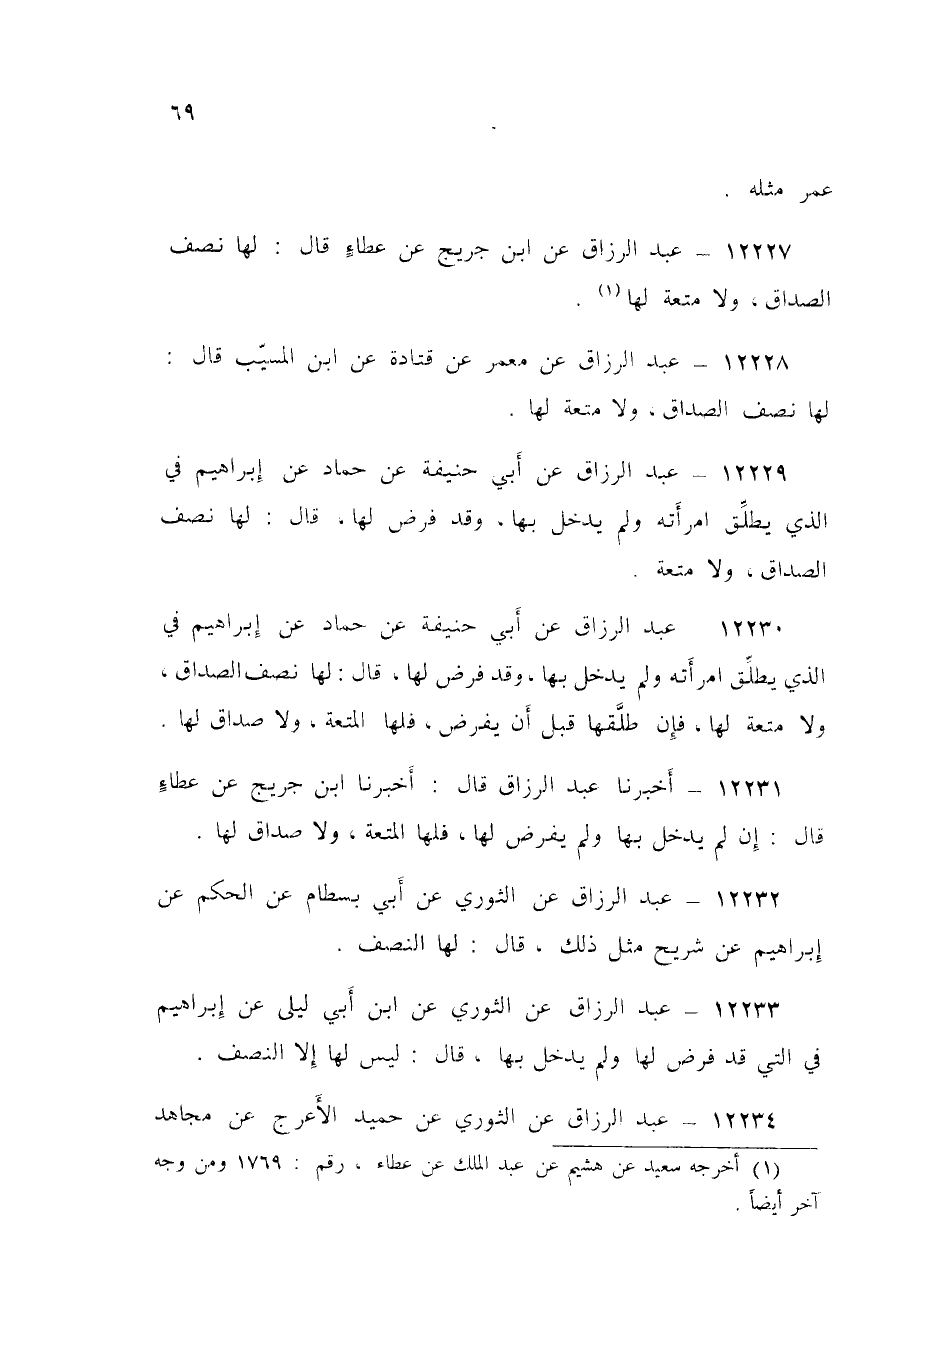 ٦٩
عمر مثله .
١٢٢٢٧ – عبد الرزاق عن ابن جريج عن عطاءٍ قال : لها نصف
الصداق ، ولا متعة لها(١) .
١٢٢٢٨ – عبد الرزاق عن معمر عن قتادة عن ابن المسيّب قال :
لها نصف الصداق ، ولا متعة لها .
١٢٢٢٩ – عبد الرزاق عن أَبي حنيفة عن حماد عن إِبراهيم في
الذي يطلِّق امرأَته ولم يدخل بها ، وقد فرض لها ، قال : لها نصف
الصداق ، ولا متعة .
١٢٢٣٠ عبد الرزاق عن أَبي حنيفة عن حماد عن إِبراهيم في
الذي يطلِّق امرأَته ولم يدخل بها ، وقد فرض لها ، قال : لها نصف الصداق ،
ولا متعة لها ، فإِن طلَّقها قبل أَن يفرض ، فلها المتعة ، ولا صداق لها .
١٢٢٣١ – أَخبرنا عبد الرزاق قال : أَخبرنا ابن جريج عن عطاءٍ
قال : إِن لم يدخل بها ولم يفرض لها ، فلها المتعة ، ولا صداق لها .
١٢٢٣٢ – عبد الرزاق عن الثوري عن أَبي بسطام عن الحكم عن
إِبراهيم عن شريح مثل ذلك ، قال : لها النصف .
١٢٢٣٣ – عبد الرزاق عن الثوري عن ابن أَبي ليلى عن إِبراهيم
في التي قد فرض لها ولم يدخل بها ، قال : ليس لها إِلا النصف .
١٢٢٣٤ – عبد الرزاق عن الثوري عن حميد الأَعرج عن مجاهد
(١) أخرجه سعيد عن هشيم عن عبد الملك عن عطاء ، رقم : ١٧٦٩ ومن وجه
آخر أيضاً .